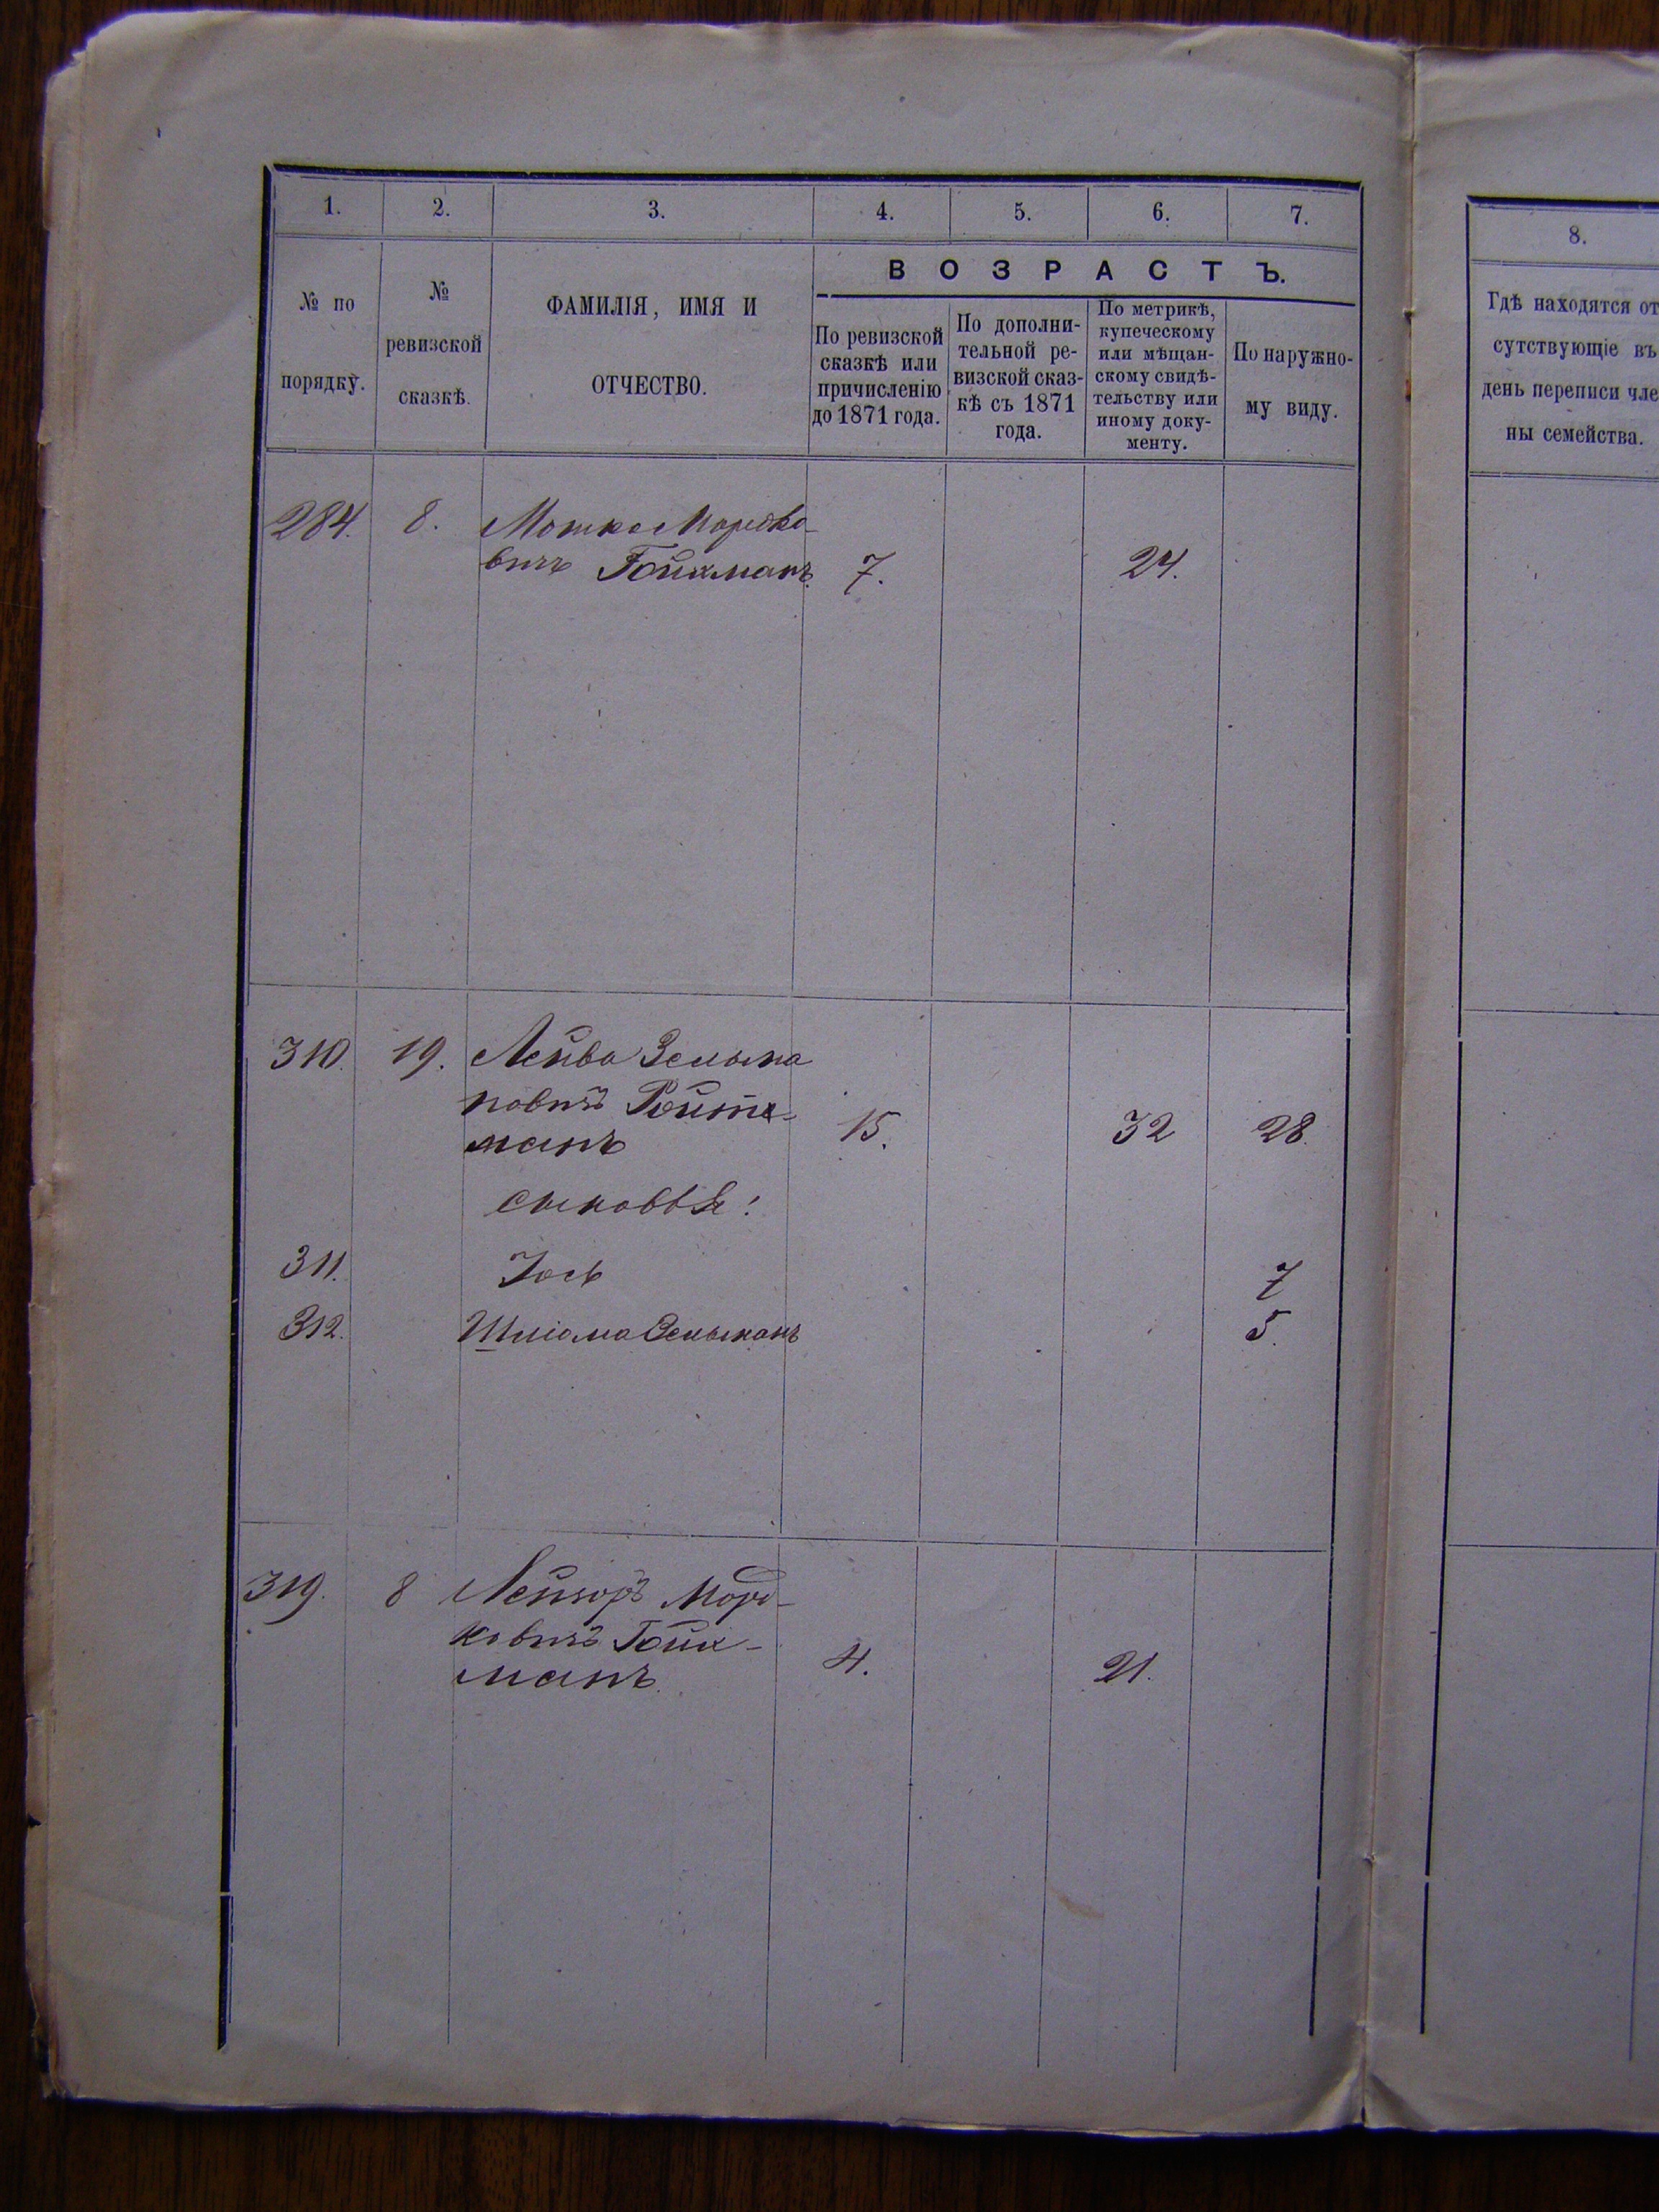 1. 2. 3. 4. 5. 6. 7.
№ по порядку.
№ ревизской сказкѣ.
ФАМИЛІЯ, ИМЯ И ОТЧЕСТВО.
ВОЗРАСТЪ.
По ревизской
сказкѣ или
причисленію
до 1871 года.
По дополни-
тельной ре-
визской сказ-
кѣ съ 1871
года.
По метрикѣ,
купеческому
или мѣщан-
скому свидѣ-
тельству или
иному доку-
менту.
По наружно-
му виду.
284. 8. Мошко Мордко-
вичъ Гойхманъ. 7. 24.
310. 19. Лейба Зельма
новичъ Ройтх-
манъ 15. 32 28.
сыновья:
311. Іось 7
312. Шліома Зельманъ 5.
319. 8 Лейзоръ Морд-
ковичъ Гойх-
манъ. 4. 21.
8.
Гдѣ находятся от
сутствующіе въ
день переписи чле
ны семейства.